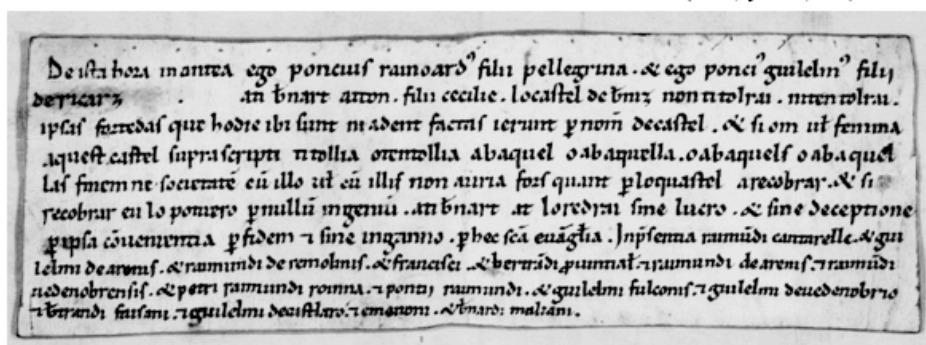 De ista hora in antea ego poncius rainoardꝰ filii pellegrina . & ego ponciꝰ guilelmꝰ filii
de ricarz . ati b̄nart atton . filii cecilie . lo castel de b̄niz non ti tolrai . ni ten tolrai .
ipsas fortedas que hodie ibi sunt ni adent factas ierunt ꝑ nom̄ de castel . & si om ul̄ femina
aquest castel suprascripti ti tollia o ten tollia ab aquel o ab aquella . o ab aquels o ab aquel
las finem ne societatē cū illo ul̄ cū illis non auria fors quant ꝑ lo quastel a recobrar . & si
recobrar en lo poniero ꝑ nullū ingeniū . ati b̄nart at lo redrai sine lucro . & sine deceptione
ꝑ ipsa cōvenientia ꝑ fidem ⁊ sine inganno . ꝑ hec scā evāgl̄ia . In p̄sentia raimūdi cantarelle . & gui
lelmi de arenis . & raimundi de remolinis . & francisci . & bertrādi ꝓvintial̄ . ⁊ raimundi de arenis . ⁊ raimūdi
uedenobrensis . & petri raimundi roinna . ⁊ pontii raimundi . & guilelmi fulconis . ⁊ guilelmi de uedenobrio
⁊ b̄trandi faisani . ⁊ guilelmi de castlaro . ⁊ emenoni . & b̄nardi maliani .